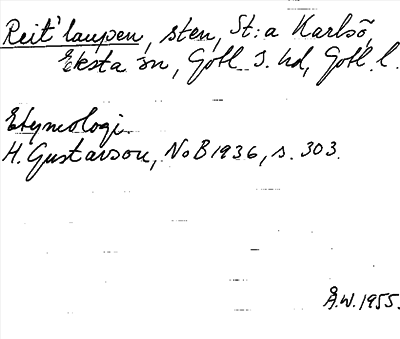 Reit'laupen, sten, St:a Karlsö,
Eksta sn, Gotl. S. hd, Gotl. l.
Etymologi
H. Gustavson, NoB 1936, s. 303.
Å.W. 1955.